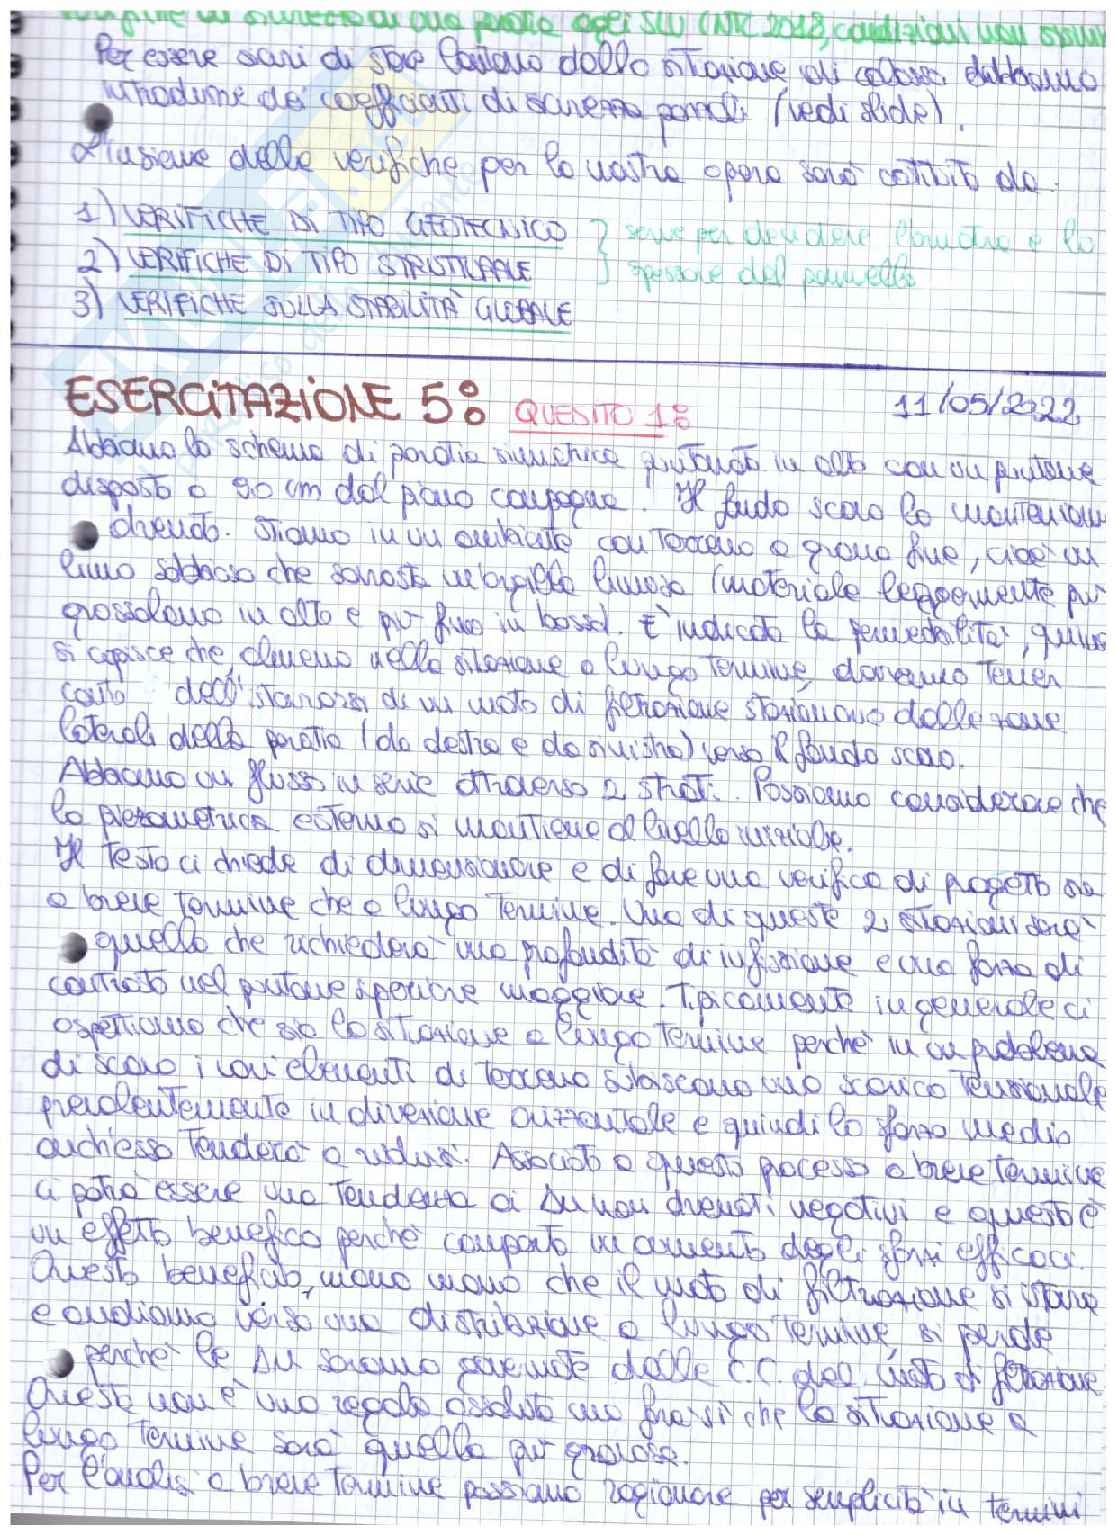 di sicurezza di una paratia agli SLU (NTC 2018, condizioni non sismi
Per essere sicuri di stare lontano dalla situazione di collasso dobbiamo
introdurre dei coefficienti di sicurezza parziali (vedi slide).
L'insieme delle verifiche per la nostra opera sarà costituito da:
1) VERIFICHE DI TIPO GEOTECNICO } serve per decidere l'armatura e lo
2) VERIFICHE DI TIPO STRUTTURALE } spessore del pannello
3) VERIFICHE SULLA STABILITÀ GLOBALE
ESERCITAZIONE 5: QUESITO 1: 11/05/2022
Abbiamo lo schema di paratia simmetrica puntonata in alto con un puntone
disposto a 50 cm dal piano campagna. Il fondo scavo lo manteniamo
drenato. Stiamo in un ambiente con terreno a grana fine, cioè un
limo sabbioso che sovrasta un'argilla limosa (materiale leggermente più
grossolano in alto e più fino in basso). È indicata la permeabilità, quindi
si capisce che, almeno nella situazione a lungo termine, dovremo tener
conto dell'instaurarsi di un moto di filtrazione stazionario dalle zone
laterali della paratia (da destra e da sinistra) verso il fondo scavo.
Abbiamo un flusso in serie attraverso 2 strati. Possiamo considerare che
la piezometrica esterna si mantiene al livello iniziale.
Il testo ci chiede di dimensionare e di fare una verifica di progetto sia
a breve termine che a lungo termine. Una di queste 2 situazioni sarà
quella che richiederà una profondità di infissione e una forza di
contrasto nel puntone superiore maggiore. Tipicamente in generale ci
aspettiamo che sia la situazione a lungo termine perché in un problema
di scavo i vari elementi di terreno subiscono uno scarico tensionale
prevalentemente in direzione orizzontale e quindi lo sforzo medio
anch'esso tenderà a ridursi. Associato a questo processo a breve termine
ci potrà essere una tendenza ai Δu non drenati negativi e questo è
un effetto benefico perché comporta un aumento degli sforzi efficaci.
Questo beneficio, mano mano che il moto di filtrazione si instaura
e andiamo verso una distribuzione a lungo termine, si perde
perché le Δu saranno governate dalle C.C. del moto di filtrazione.
Questa non è una regola assoluta ma fa sì che la situazione a
lungo termine sarà quella più gravosa.
Per l'analisi a breve termine possiamo ragionare per semplicità in termini